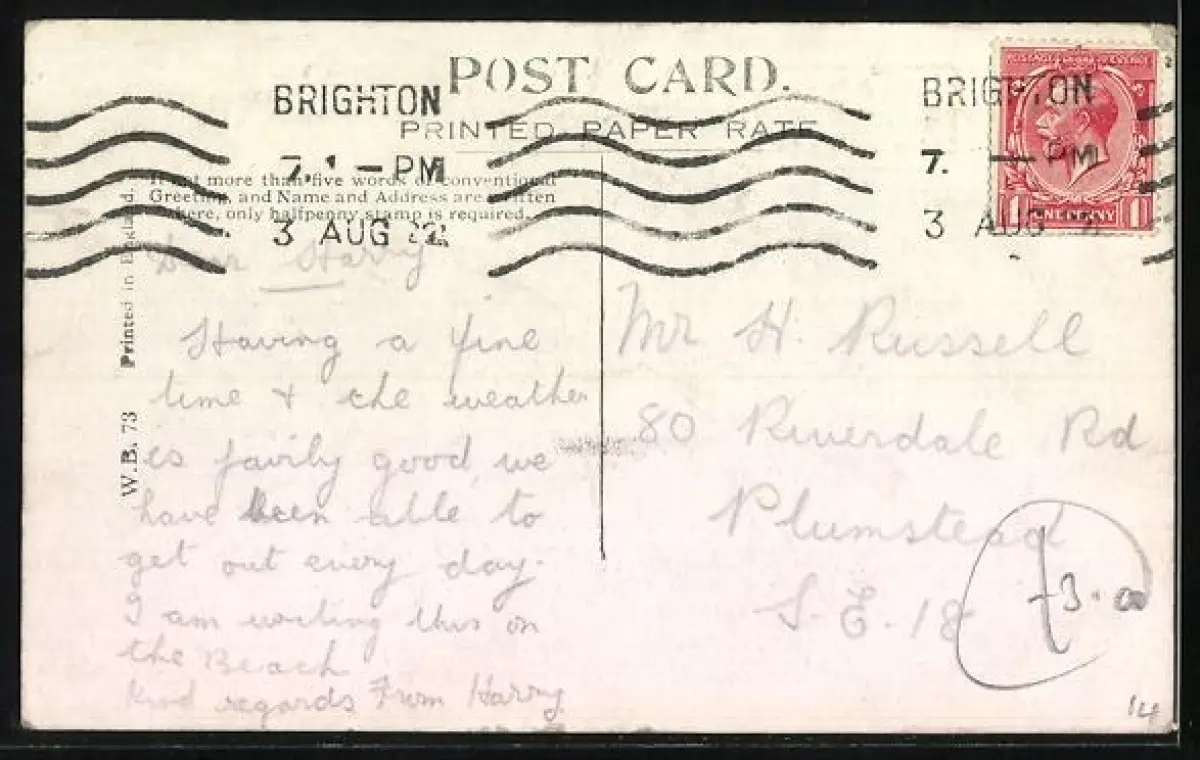 POST CARD.
PRINTED PAPER RATE
BRIGHTON
7. - PM
3 AUG 22
BRIGHTON
7. - PM
3 AUG
POSTAGE REVENUE
1 ONE PENNY 1
If not more than five words of conventional
Greeting, and Name and Address are written
here, only halfpenny stamp is required.
W.B. 73 Printed in England.
Dear Harry
Having a fine
time + the weather
is fairly good, we
have been able to
get out every day.
I am writing this on
the Beach
Kind regards From Harry
Mr H. Russell
80 Riverdale Rd
Plumstead
S.E. 18